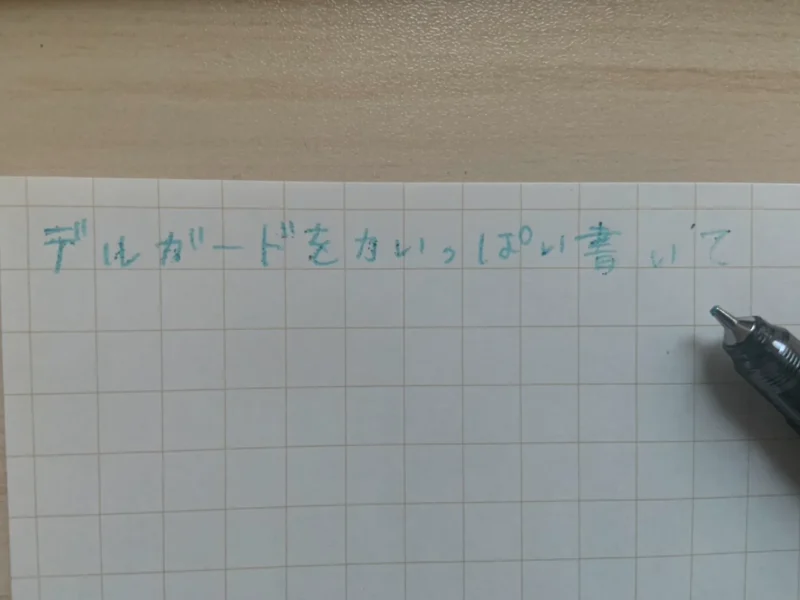 デルガードを力いっぱい書いて